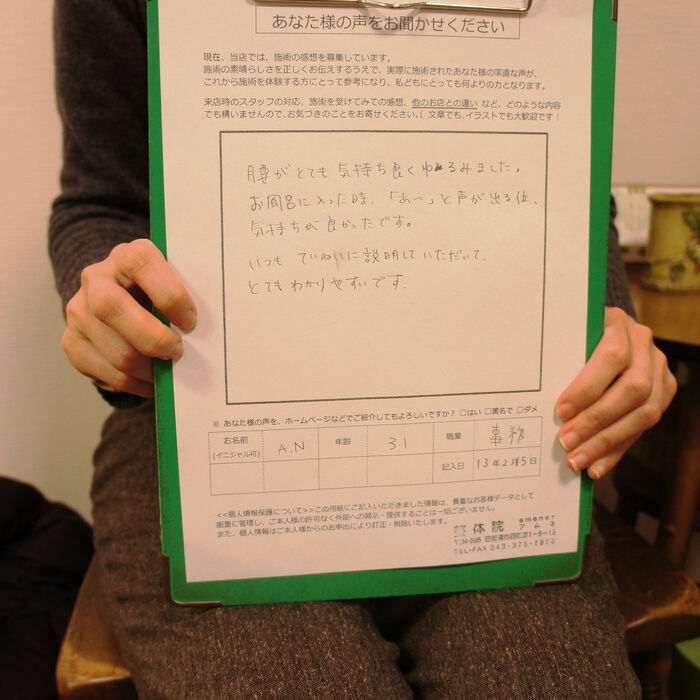 あなた様の声をお聞かせください
現在、当店では、施術の感想を募集しています。
施術の素晴らしさを正しくお伝えするうえで、実際に施術されたあなた様の率直な声が、
これから施術を体験する方にとって参考になり、私どもにとっても何よりの力となります。
来店時のスタッフの対応、施術を受けてみての感想、他のお店との違い など、どのような内容
でも構いませんので、お気づきのことをお寄せください。( 文章でも、イラストでも大歓迎です
腰がとても気持ち良くゆるみました。
お風呂に入った時、「あ〜」と声が出る位、
気持ちが良かったです。
いつも ていねいに説明していただいて、
とてもわかりやすいです。
※ あなた様の声を、ホームページなどでご紹介してもよろしいですか? □はい □匿名で □ダメ
お名前 (イニシャル可) A.N 年齢 31 職業 事務
記入日 13年2月5日
<<個人情報保護について>>この用紙にご記入いただきました情報は、貴重なお客様データとして
厳重に管理し、ご本人様の許可なく外部への開示・提供することは一切ございません。
また、個人情報はご本人様からのお申出により訂正・削除いたします。
体院 amener アムネ
TEL・FAX 043-375-7873